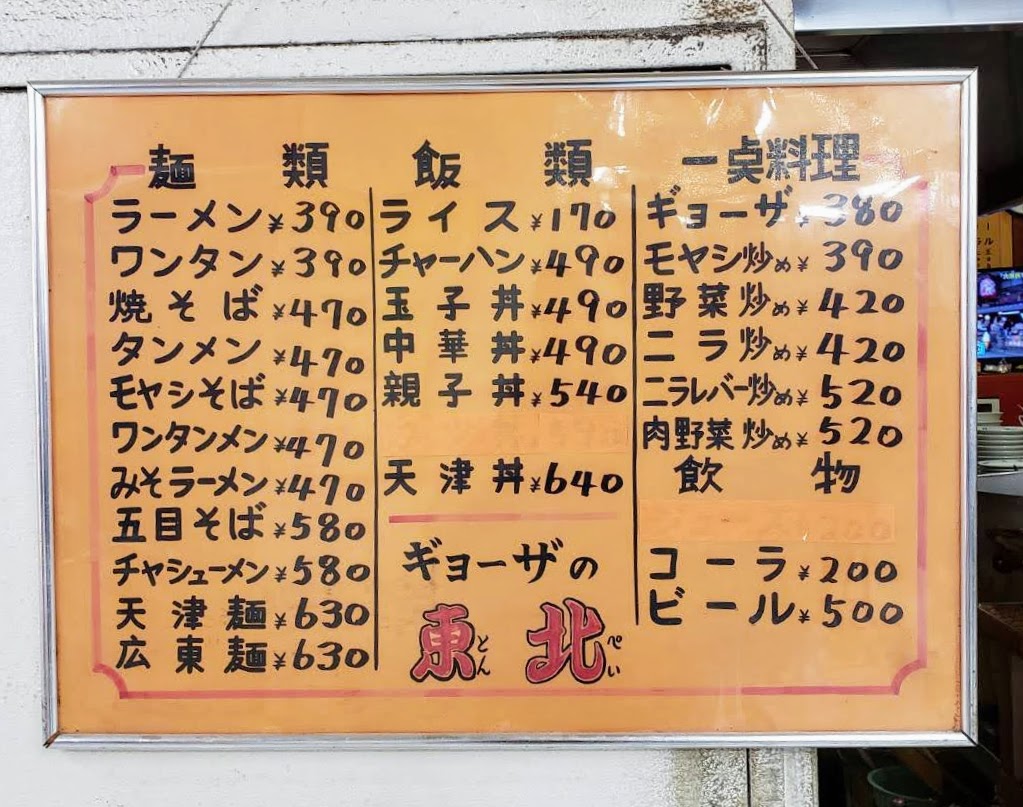 麺類
ラーメン ¥390
ワンタン ¥390
焼そば ¥470
タンメン ¥470
モヤシそば ¥470
ワンタンメン ¥470
みそラーメン ¥470
五目そば ¥580
チャシューメン ¥580
天津麺 ¥630
広東麺 ¥630
飯類
ライス ¥170
チャーハン ¥490
玉子丼 ¥490
中華丼 ¥490
親子丼 ¥540
天津丼 ¥640
ギョーザの
東北
とん
ぺい
一点料理
ギョーザ ¥380
モヤシ炒め ¥390
野菜炒め ¥420
ニラ炒め ¥420
ニラレバー炒め ¥520
肉野菜炒め ¥520
飲物
コーラ ¥200
ビール ¥500